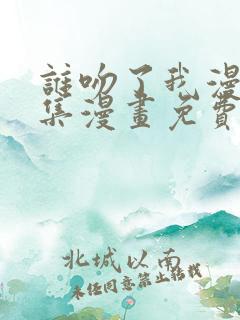 誰吻了我漫
集漫畫免費
北城以南
未经同意禁止转载